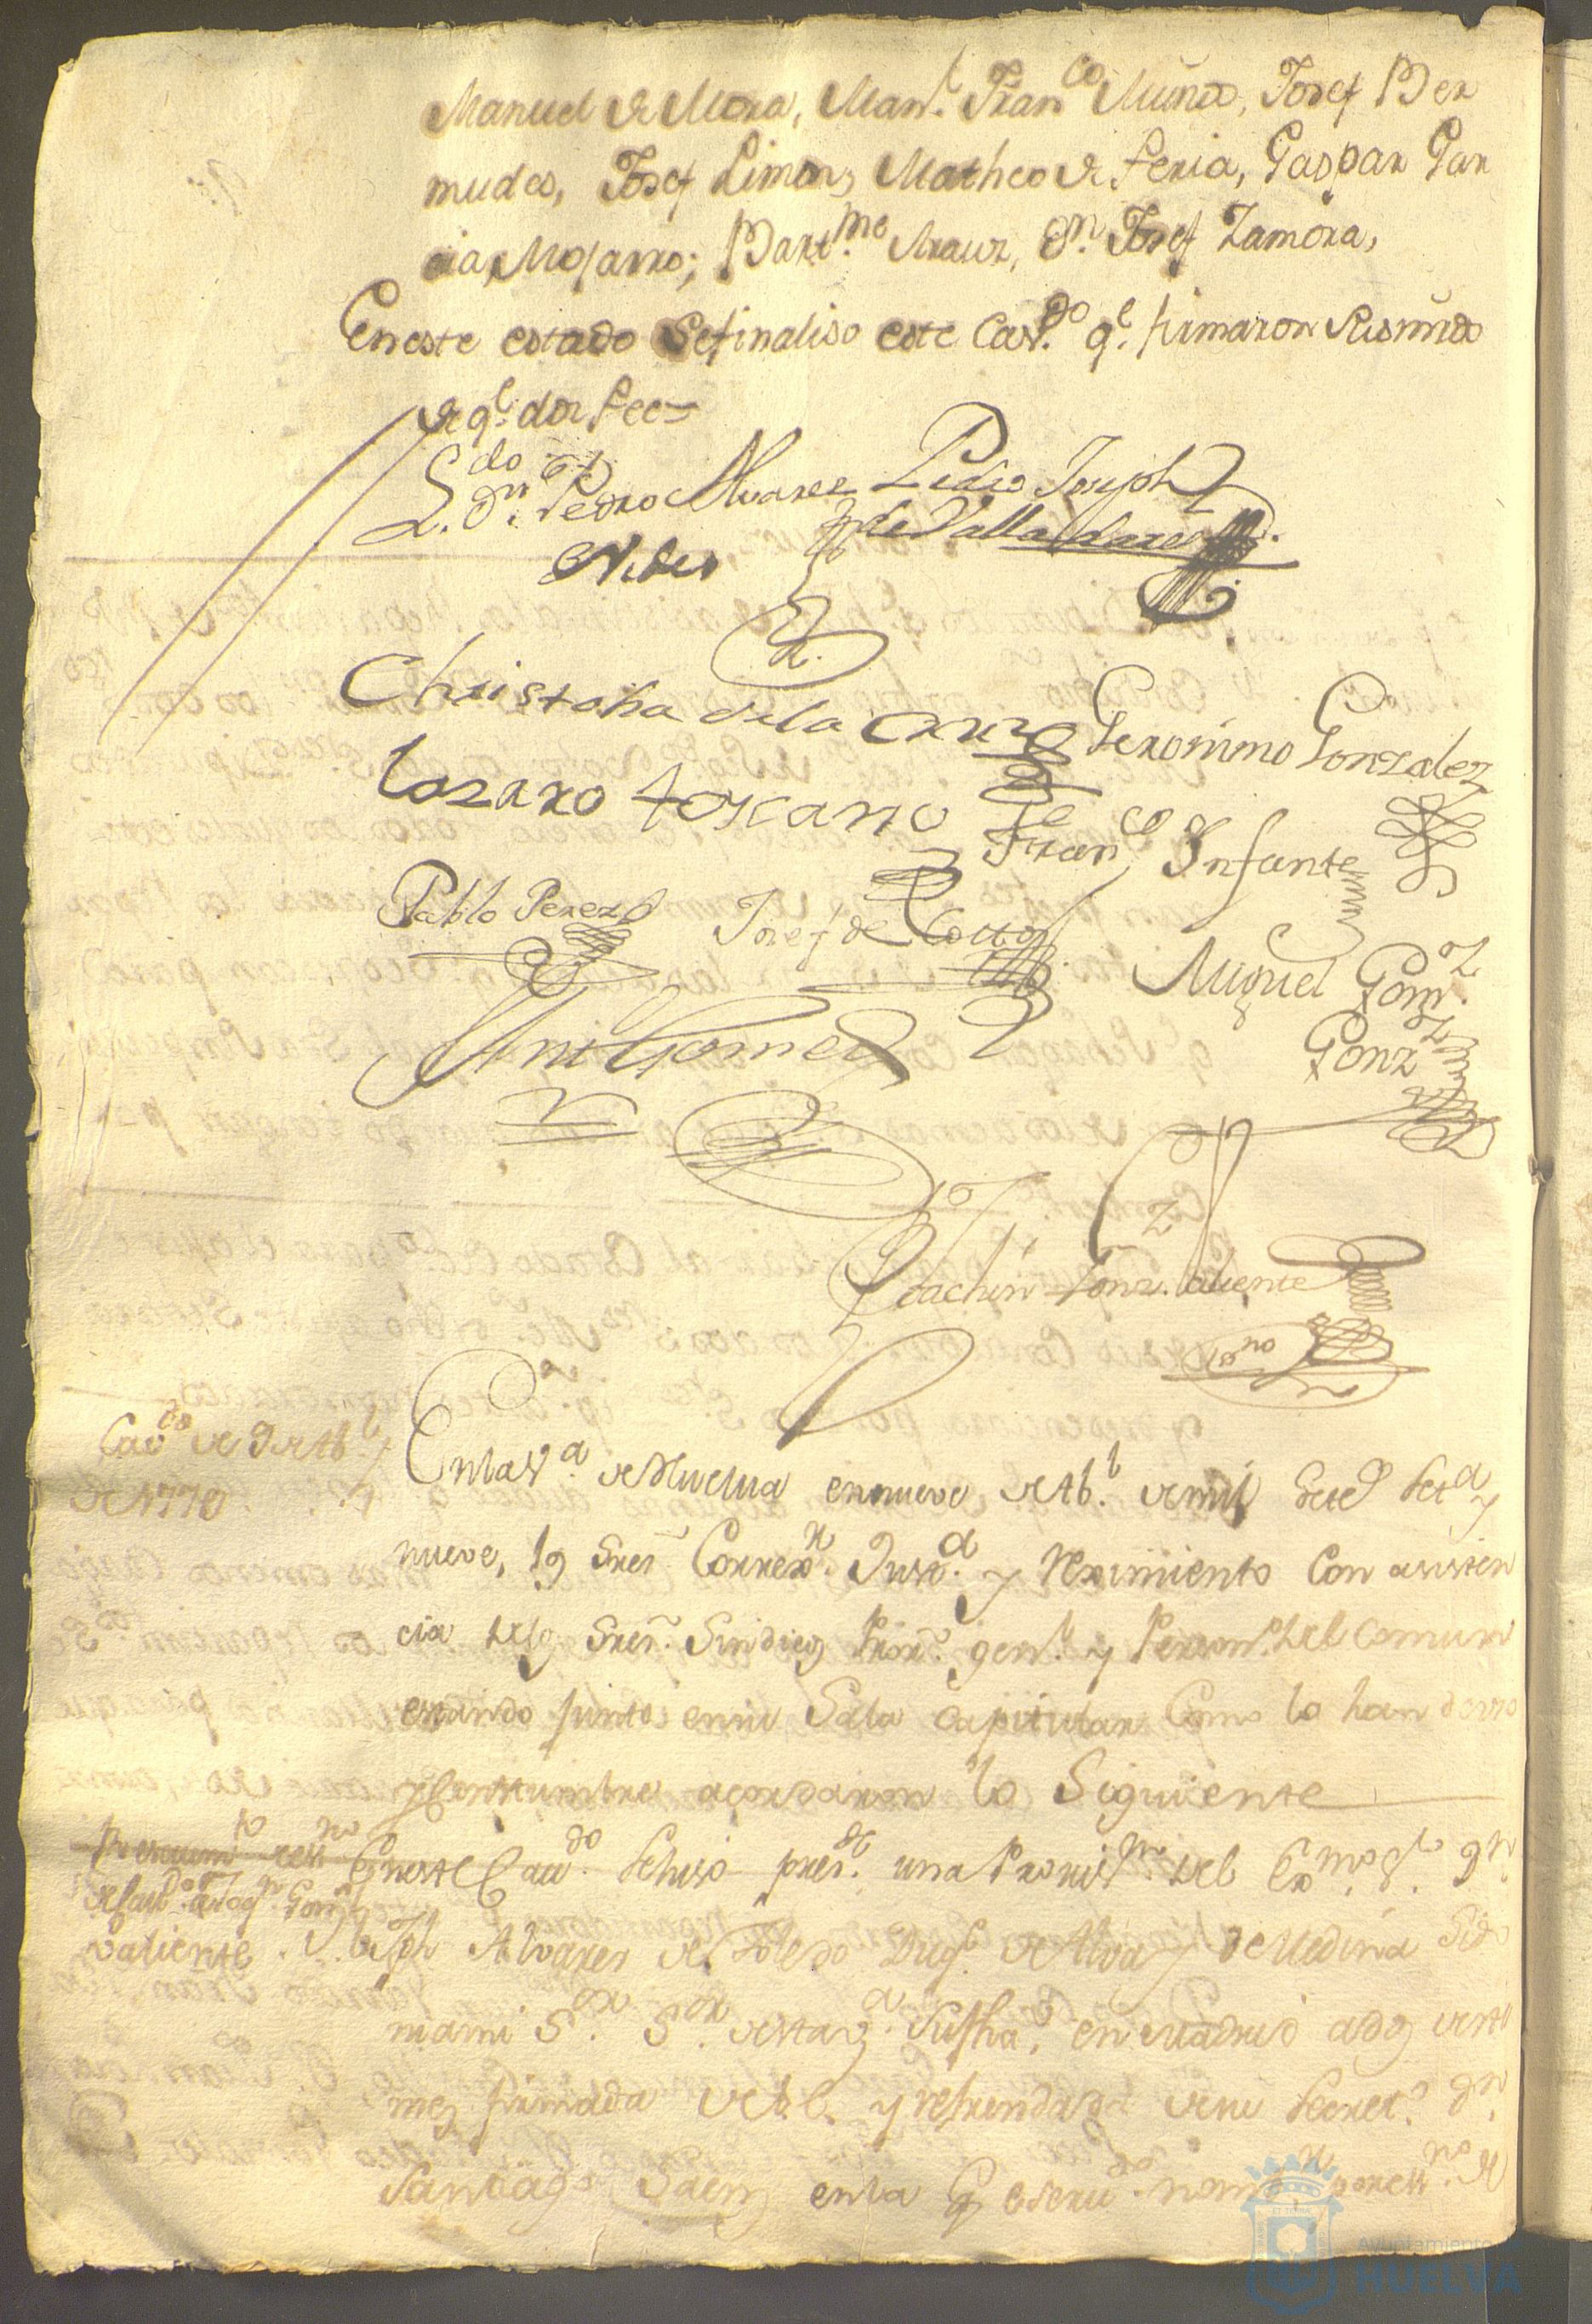 Manuel de Mora, Man.l Fran.co Muñoz, Josef Ber
mudes, Josef Limon, Matheo de Feria, Gaspar Gar
cia Mojarro; Bart.me Arauz, Dn. Josef Zamora,
En este estado se finaliso este Cav.do q.e firmaron sus mrds
de q.e doi fee=
L.do Dn. Pedro Alvarez Pedro Joseph
de Valladares
Christoba de la Cruz Geronimo Gonzalez
Lazaro toscano Fran.co Infante
Pablo Perez Josef de Cotto
Miguel Gom.z
Ant Gomez Gonz.z
Joachin Gonz. Valiente
ss.no
Cav.do de 9 de Ab.l
de 1770
En la V.a de Huelva en nueve de Ab.l de mil Setec.s Set.a y
nueve, los Sres. Correx.r Just.a y Reximiento Con asisten
cia de los Sres. Sindicos Pror. gen.l y Person.o del Comun
estando juntos en su Sala Capitular Como lo han de vzo
y Costtumbre acordaron lo Siguiente
En este Cav.do se hiso pres.te una Provis.on del Ex.mo S.or Dn.
Valiente. Jph Alvares de Toledo Duq.e de Alva y de Medina Sido
nia mi S.or S.or de esta V.a Su fha. en Madrid a dos de este
mes firmada de S.E. y refrendada de su Secret.o Dn.
Santiago Saenz en la q.e
Ayuntamiento
HUELVA